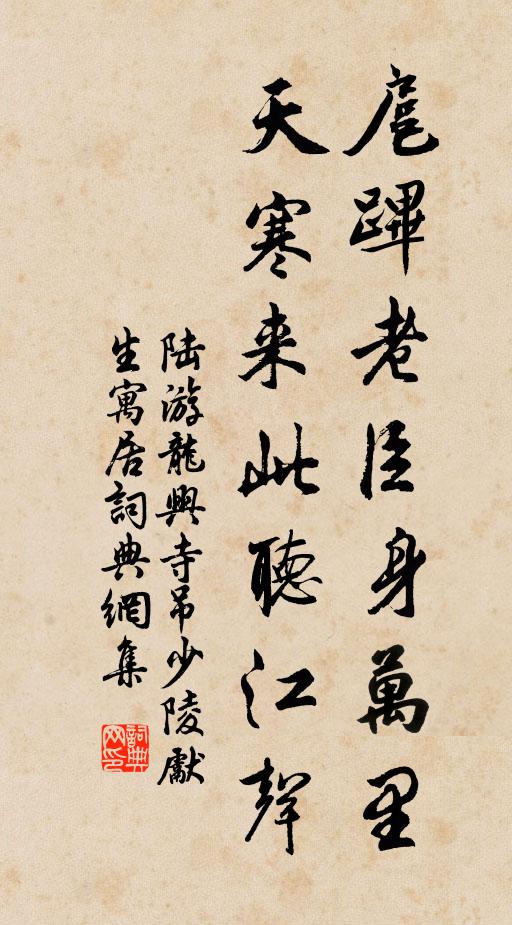 扈蹕老臣身萬里
天寒来此聽江聲
陸游龍興寺吊少陵獻
生寓居詞典網集
詞典网印